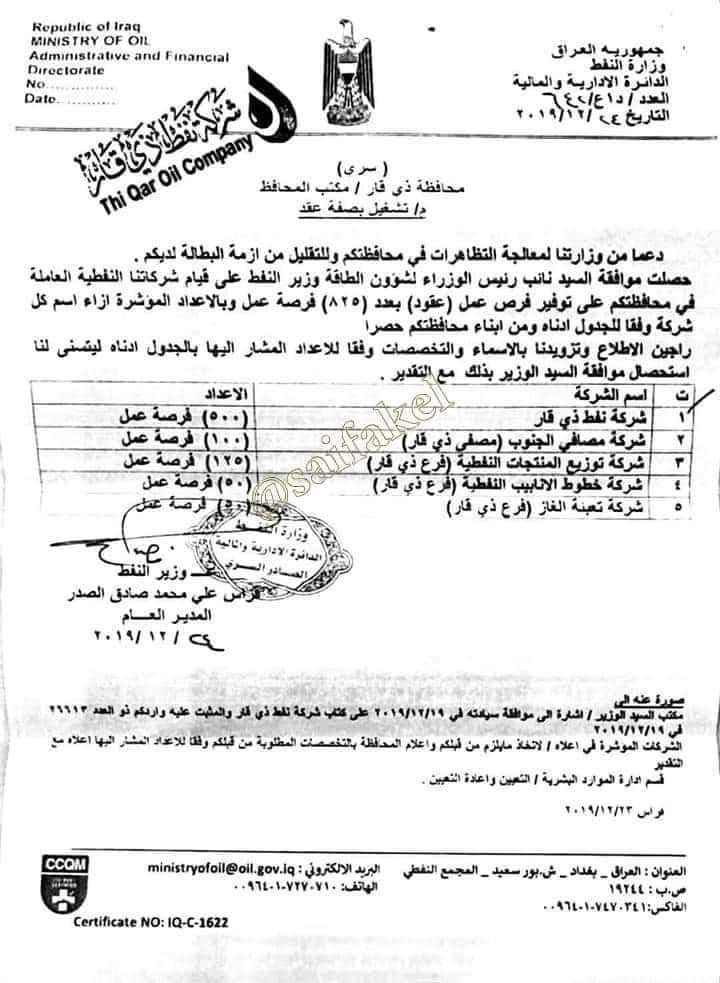 Republic of Iraq
MINISTRY OF OIL
Administrative and Financial
Directorate
No.............
Date............
جمهورية العراق
وزارة النفط
الدائرة الادارية والمالية
العدد / د/ع/ ٦٤٢
التاريخ ٢٤ / ١٢ / ٢٠١٩
شركة نفط ذي قار
Thi Qar Oil Company
( سري )
محافظة ذي قار / مكتب المحافظ
م/ تشغيل بصفة عقد
دعما من وزارتنا لمعالجة التظاهرات في محافظتكم وللتقليل من ازمة البطالة لديكم .
حصلت موافقة السيد نائب رئيس الوزراء لشؤون الطاقة وزير النفط على قيام شركاتنا النفطية العاملة
في محافظتكم على توفير فرص عمل (عقود) بعدد (٨٢٥) فرصة عمل وبالاعداد المؤشرة ازاء اسم كل
شركة وفقا للجدول ادناه ومن ابناء محافظتكم حصرا
راجين الاطلاع وتزويدنا بالاسماء والتخصصات وفقا للاعداد المشار اليها بالجدول ادناه ليتسنى لنا
استحصال موافقة السيد الوزير بذلك مع التقدير .
ت اسم الشركة الاعداد
١ شركة نفط ذي قار (٥٠٠) فرصة عمل
٢ شركة مصافي الجنوب (مصفى ذي قار) (١٠٠) فرصة عمل
٣ شركة توزيع المنتجات النفطية (فرع ذي قار) (١٢٥) فرصة عمل
٤ شركة خطوط الانابيب النفطية (فرع ذي قار) (٥٠) فرصة عمل
٥ شركة تعبئة الغاز (فرع ذي قار) (٥٠) فرصة عمل
@saifakel
وزارة النفط
الدائرة الادارية والمالية
الصادر السري
عـ وزير النفط
فراس علي محمد صادق الصدر
المدير العام
٢٤ / ١٢ / ٢٠١٩
صورة عنه الى
مكتب السيد الوزير / اشارة الى موافقة سيادته في ٢٠١٩/١٢/١٩ على كتاب شركة نفط ذي قار والمثبت عليه واردكم ذو العدد ٢٦٦١٣
في ٢٠١٩/١٢/١٩
الشركات المؤشرة في اعلاه / لاتخاذ مايلزم من قبلكم واعلام المحافظة بالتخصصات المطلوبة من قبلكم وفقا للاعداد المشار اليها اعلاه مع
التقدير
قسم ادارة الموارد البشرية / التعيين واعادة التعيين .
فراس ٢٠١٩/١٢/٢٣
العنوان : العراق _ بغداد _ ش.بور سعيد _ المجمع النفطي
ص.ب : ١٩٢٤٤
الفاكس: ٠٠٩٦٤٠١-٧٤٧٠٣٤١
البريد الالكتروني : ministryofoil@oil.gov.iq
الهاتف: ٠٠٩٦٤٠١-٧٢٧٠٧١٠
CCQM
Certificate NO: IQ-C-1622